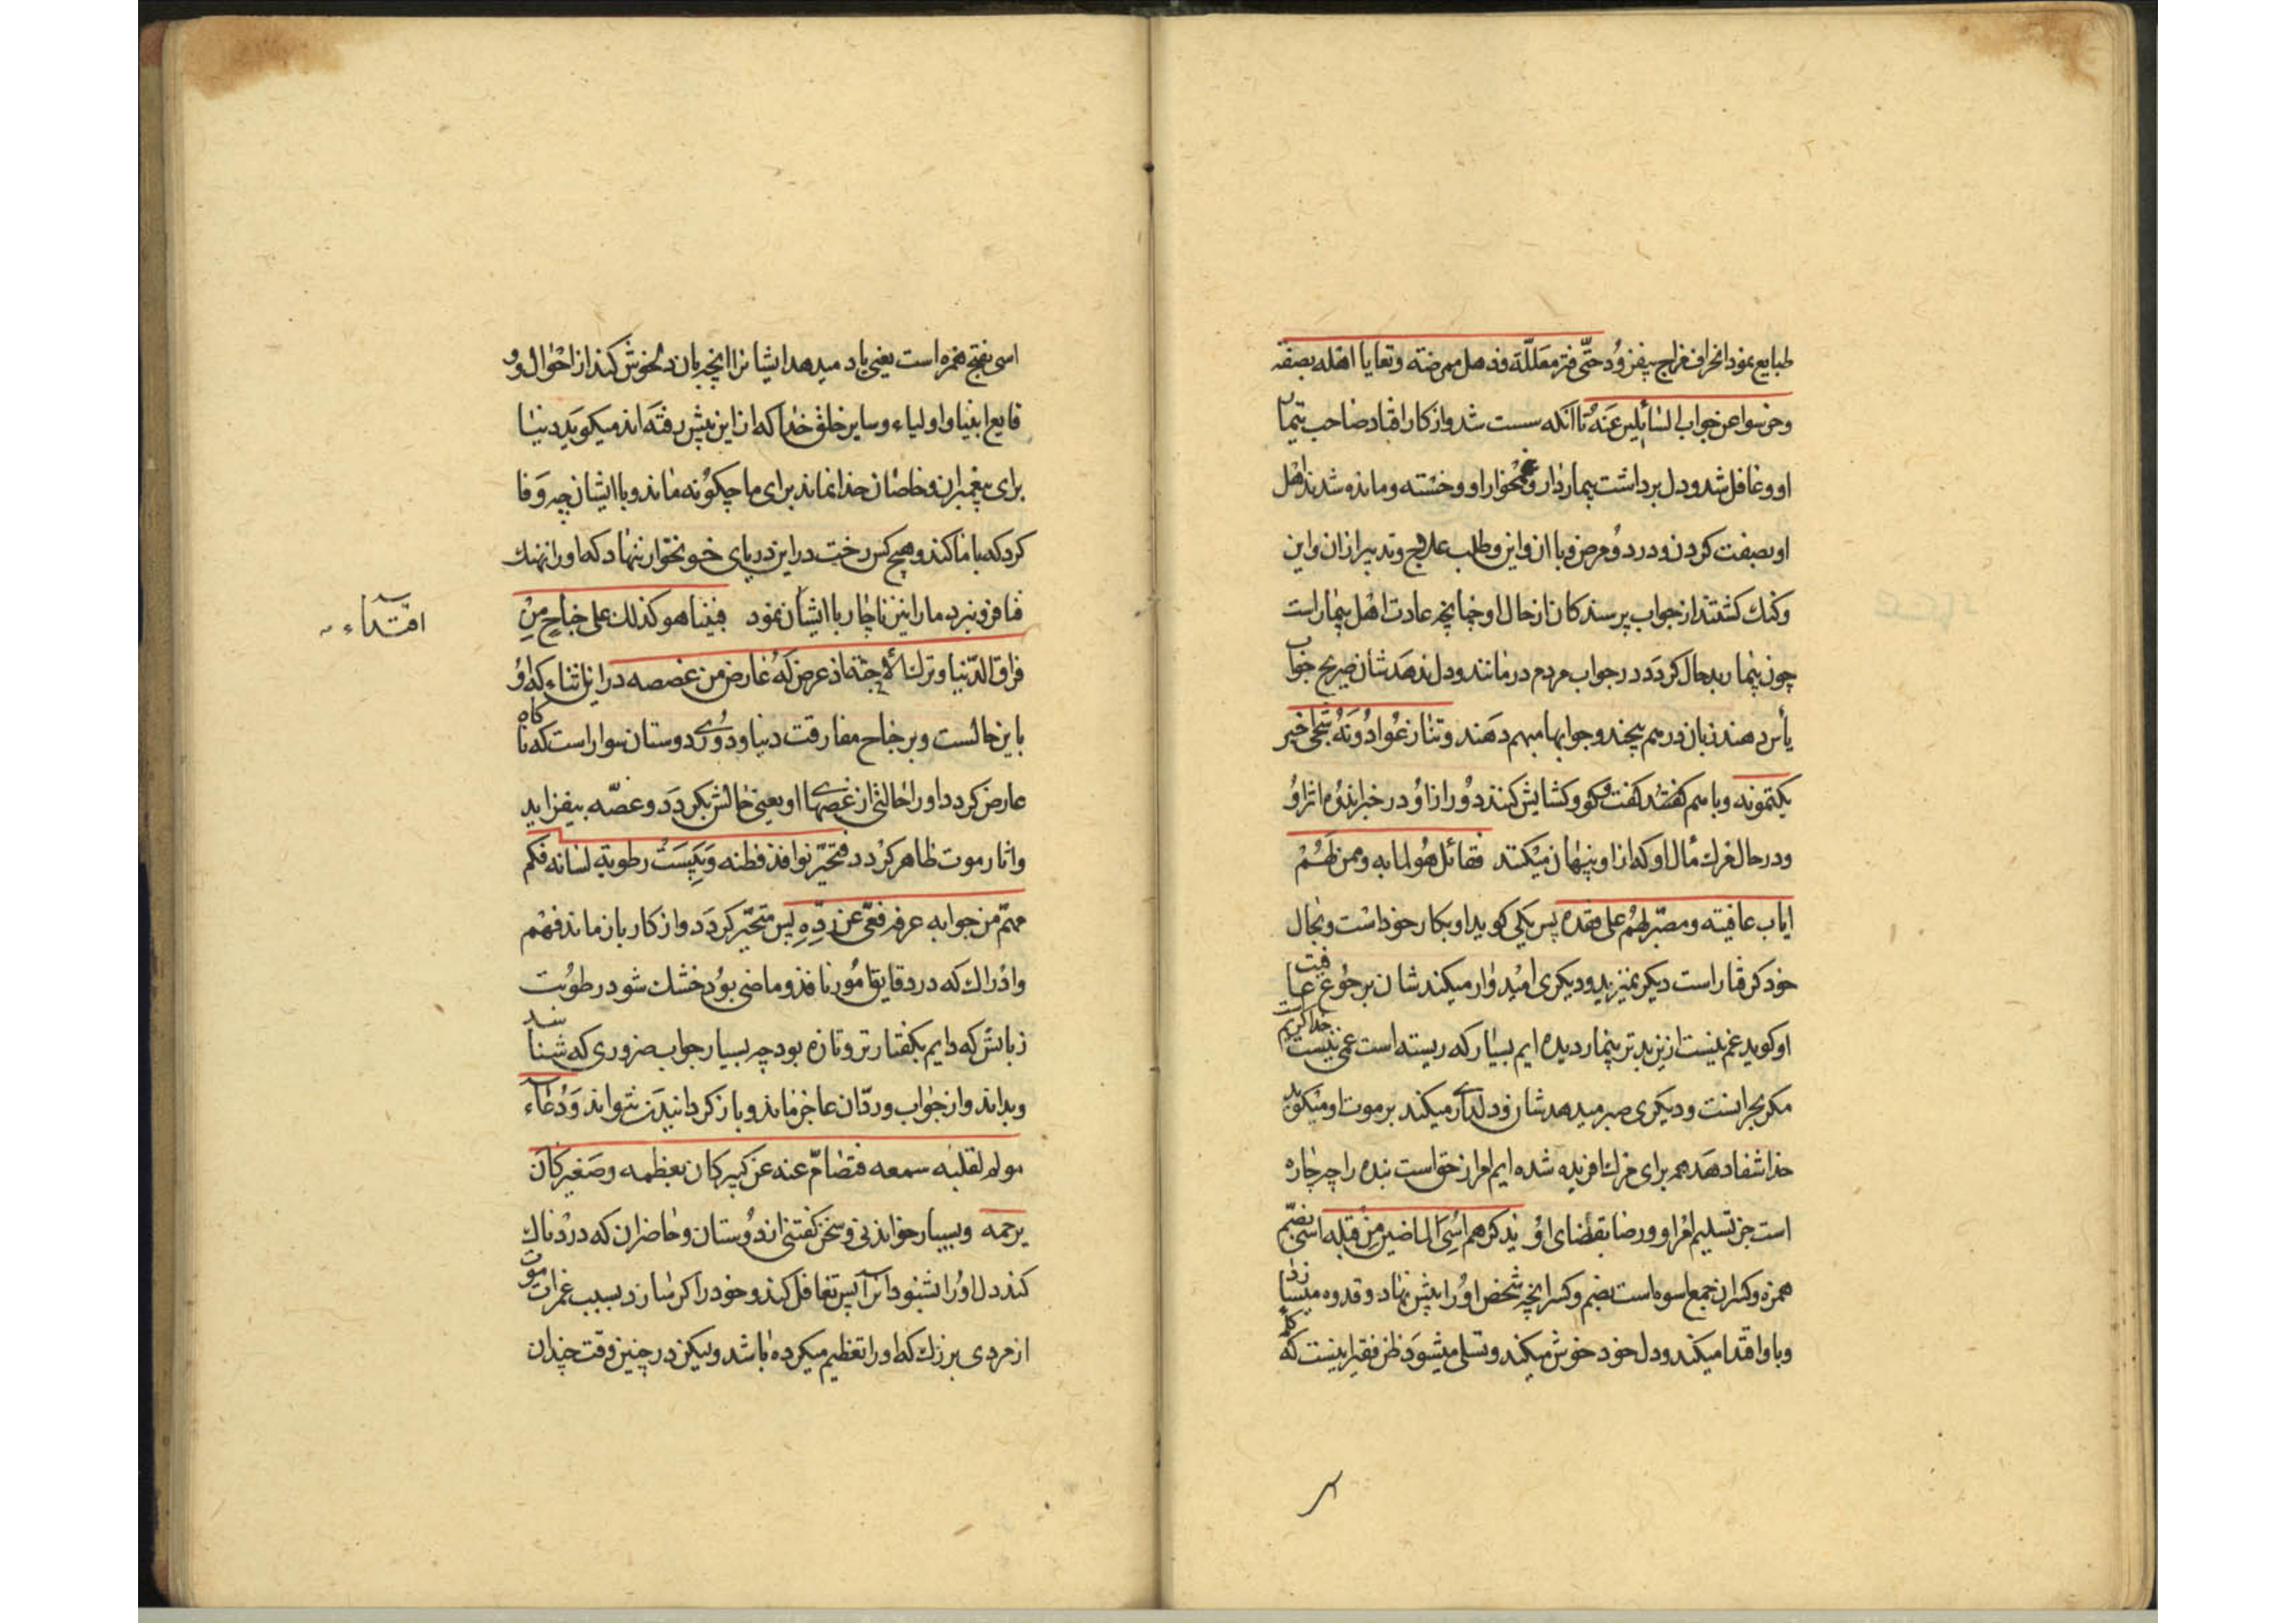 طبایع نمود انحراف مزاج بیفزود حتّی فتر معلّله و ذهل ممرضه و تعایا اهله بصفة
و خرسوا عن جواب السائلین عنه تا آنکه سست شد و از کار افتاد صاحب تیما
او و غافل شد و دل برداشت بیماردار و غمخوار او و خسته و مانده شدند اهل
او بصفت کردن و درد و مرض و با ان و این و طلب علاج و تدبیر از ان و این
و کنك کشتند از جواب پرسندکان از حال او چنانچه عادت اهل بیمار است
چون بیمار بدحال کردد در جواب مردم درمانند و دل ندهدشان صریح جواب
یأس دهند زبان در هم پیچند و جوابها مبهم دهند و تنازعوا دونه شجی خبر
یکتمونه و با هم گفتند کفت و کو و کشایش کنند دور از او در خبر اندوه اثر او
و در حال مرك مآل او که از او پنهان میکنند فقائل هو لما به و ممن لهم
ایاب عافیته و مصبّر لهم علی فقده پس یکی کوید او بکار خود است و بحال
خود کرفتار است دیکر نمیزید و دیکری امیدوار میکندشان برجوع عافیت
او کوید غم نیست ازین بدتر بیمار دیده ایم بسیار که رسته است غمی نیست خدا کریم
مکر بحرانست و دیکری صبر میدهدشان و دلداری میکند بر موت او میکوید
خدا شفا دهد همه برای مرك افریده شده ایم امر از حق است بنده را چه چاره
است جز تسلیم امر او و رضا بقضای او یذکرهم اسی الماضین من قبله اسی بضم
همزه و کسر ان جمع اسوه است بضم و کسر انچه شخص او را پیش نهاد و قدوه میسازد
و باو اقتدا میکند و دل خود خوش میکند و تسلی میشود ظن فقیر اینست که
اسی بفتح همزه است یعنی یاد میدهد ایشانرا انچه بان دلخوش کنند از احوال و و
قایع انبیا و اولیاء و سایر خلق خدا که از این پیش رفته اند میکوید دنیا
برای پیغمبران و خاصان خدا نماند برای ما چکونه ماند و با ایشان چه وفا
کرد که با ما کند و هیچ کس رخت در این دریای خونخوار ننهاد که او را نهنك
فنا فرو نبرد ما را نیز ناچار با ایشان نمود فبینا هو کذلك علی جناح من
اقتداء
فراق الدّنیا و ترك الأحبّة اذ عرض له عارض من غصصه در این اثناء که او
باین حالست و بر جناح مفارقت دنیا و دوری دوستان سوار است که ناکاه
عارض کردد او را حالتی از غصهای او یعنی حالش بکردد و غصّه بیفزاید
و اثار موت ظاهر کردد فتحیّر نوافذ فطنه و یبست رطوبة لسانه فکم
من مهمّ من جوابه عرفه فعیّ عن ردّه پس متحیّر کردد و از کار باز ماند فهم
و ادراك که در دقایق امور نافذ و ماضی بود خشك شود رطوبت
زبانش که دایم بکفتار تر و تازه بود چه بسیار جواب ضروری که شناسد
و بداند و از جواب و ردّ ان عاجز ماند و باز کردانیدن نتواند و دعاء
مولم لقلبه سمعه فتصامّ عنه من کبیر کان یعظمه و صغیر کان
یرحمه و بسیار خواندنی و سخن کفتنی از دوستان و حاضران که دردناك
کند دل او را بشنود انرا پس تغافل کند و خود را کر سازد بسبب غمرات موت
از مردی بزرك که او را تعظیم میکرده باشد و لیکن در چنین وقت چندان